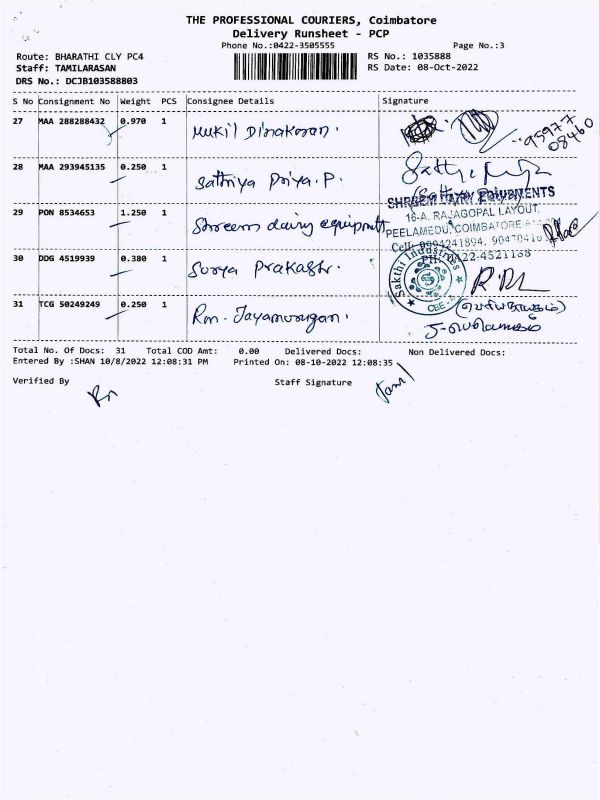 THE PROFESSIONAL COURIERS, Coimbatore
Delivery Runsheet - PCP
Phone No.:0422-3505555 Page No.:3
Route: BHARATHI CLY PC4 RS No.: 1035888
Staff: TAMILARASAN RS Date: 08-Oct-2022
DRS No.: DCJB103588803
S No Consignment No Weight PCS Consignee Details Signature
27 MAA 288288432 0.970 1 Mukil Dinakaran.
28 MAA 293945135 0.250 1 Sathiya Priya.P.
(Sathya Priya)
29 PON 8534653 1.250 1 Shreem dairy equipments
SHREEM DAIRY EQUIPMENTS
16-A, RAJAGOPAL LAYOUT,
PEELAMEDU, COIMBATORE
30 DDG 4519939 0.380 1 Surya Prakash.
PH: 0422-4521138
Sakthi Industries
CBE
31 TCG 50249249 0.250 1 Rm. Jayamurugan.
Total No. Of Docs: 31 Total COD Amt: 0.00 Delivered Docs: Non Delivered Docs:
Entered By :SHAN 10/8/2022 12:08:31 PM Printed On: 08-10-2022 12:08:35
Verified By Staff Signature